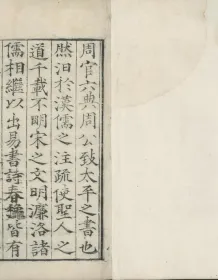 周官六典周公致太平之書也
然汩於漢儒之注疏使聖人之
道千載不明宋之文明濂洛諸
儒相繼以出易書詩春秋皆有